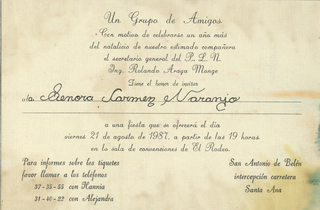 Un Grupo de Amigos
Con motivo de celebrarse un año más
del natalicio de nuestro estimado compañero
el secretario general del P. L. N.
Ing. Rolando Araya Monge
Tiene el honor de invitar
a la Señora Carmen Naranjo
a una fiesta que se ofrecerá el día
viernes 21 de agosto de 1987, a partir de las 19 horas
en la sala de convenciones de El Rodeo.
Para informes sobre los tiquetes
favor llamar a los teléfonos
37-35-55 con Hannia
31-40-22 con Alejandra
San Antonio de Belén
intercepción carretera
Santa Ana